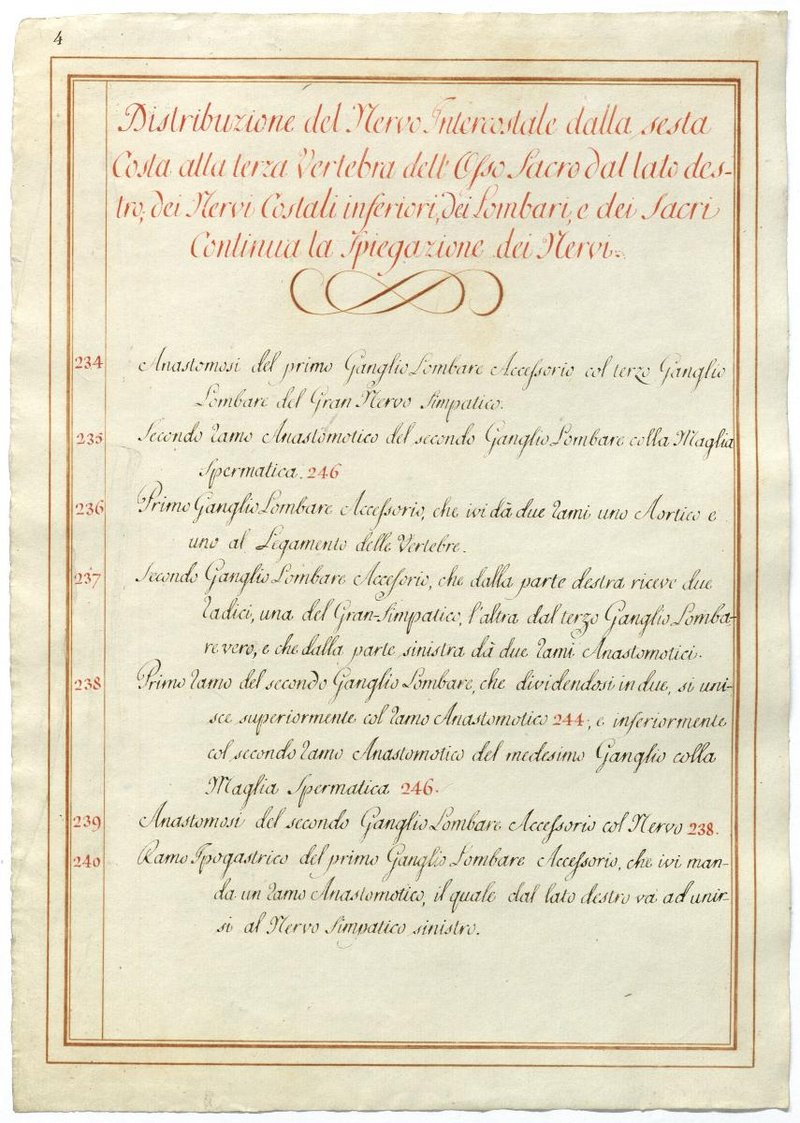 4
Distribuzione del Nervo Intercostale dalla sesta
Costa alla terza Vertebra dell' Osso Sacro dal lato des-
tro, dei Nervi Costali inferiori, dei Lombari, e dei Sacri
Continua la Spiegazione dei Nervi.
234 Anastomosi del primo Ganglio Lombare Accessorio col terzo Ganglio
Lombare del Gran Nervo Simpatico.
235 Secondo ramo Anastomotico del secondo Ganglio Lombare colla Maglia
Spermatica. 246
236 Primo Ganglio Lombare Accessorio, che ivi dà due rami uno Aortico e
uno al Legamento delle Vertebre.
237 Secondo Ganglio Lombare Accesorio, che dalla parte destra riceve due
radici, una del Gran-Simpatico, l'altra dal terzo Ganglio Lomba-
re vero, e che dalla parte sinistra dà due rami Anastomotici.
238 Primo ramo del secondo Ganglio Lombare, che dividendosi in due, si uni-
sce superiormente col ramo Anastomotico 244, e inferiormente
col secondo ramo Anastomotico del medesimo Ganglio colla
Maglia Spermatica 246.
239 Anastomosi del secondo Ganglio Lombare Accessorio col Nervo 238.
240 Ramo Ipogastrico del primo Ganglio Lombare Accessorio, che ivi man-
da un ramo Anastomotico, il quale dal lato destro va ad unir-
si al Nervo Simpatico sinistro.